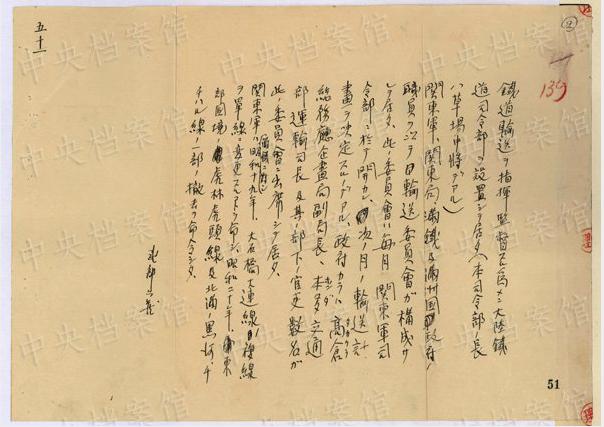 ②
139
鐵道輸送ヲ指揮監督スル為メニ大陸鐵
道司令部ヲ設置シテ居タ(本司令部長
ハ草場中將デアル)
関東軍ハ関東局、滿鐵及滿洲国政府ノ
職員ヲ以テ輸送委員會ガ構成サ
レテ居タ、此ノ委員會ハ毎月関東軍司
令部ニ於テ開カレ、次ノ月ノ輸送計
畫ヲ決定スルノデアル、政府カラハ高倉
総務廳企畫局副局長、本多交通
部運輸司長及其ノ部下ノ官吏数名ガ
此ノ委員會ニ出席シテ居タ、
関東軍ハ昭和十九年、大石橋大連線ノ複線
ヲ單線ニ変更スベク命ジ昭和二十年、東
部国境ノ虎林虎頭線及北滿ノ黒河チ
チハル線ノ一部ノ撤去ヲ命令シタ、
武部六藏
五十一
51
中央档案馆